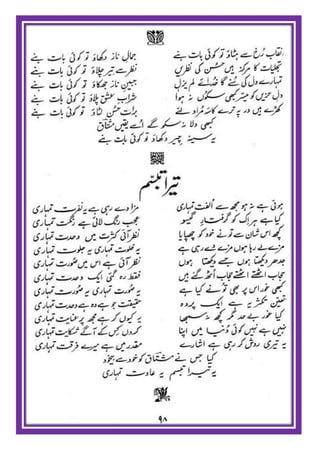 نقاب رُخ سے ہٹاؤ تو کوئی بات بنے جمالِ ناز دکھاؤ تو کوئی بات بنے
تجلیات کا مرکز ہیں حسن کی نظریں نظر سے تیر چلاؤ تو کوئی بات بنے
تمہارے دل کی سُنے گا خدائے لم یزل جبینِ ناز جھکاؤ تو کوئی بات بنے
دلِ حزیں کو میسر کبھی سکوں نہ ہوا شرابِ عشق پلاؤ تو کوئی بات بنے
کھڑے ہیں در پہ ترے کاسۂ مُراد لئے حسن لٹاؤ تو کوئی بات بنے
کبھی دِلا نہ سکو گے اُسے یقیں مشتاق
یہ سینہ چیر دکھاؤ تو کوئی بات بنے
تیرا تبسّم
ہوئی ہے مجھ سے اُلفت تمہاری مزا دے رہی ہے یہ نفرت تمہاری
کیا ہے ہر اِک کو گرفتارِ گیسو عجب رنگ لائی ہے رنگت تمہاری
کچھ اس شان سے تو نے خود کو چھپایا نظر آئی کثرت میں وحدت تمہاری
مزے لے رہا ہوں مزے دے رہی ہے یہ خلوت تمہاری یہ جلوت تمہاری
جدھر دیکھتا ہوں جسے دیکھتا ہوں نظر آئی ہے اس میں صورت تمہاری
حجاب اٹھتے اٹھتے حجاب اُٹھ گئے ہیں فقط رہ گئی ایک وحدت تمہاری
کبھی غور اس پر بھی تو نے کیا ہے یہ صورت تمہاری یہ صورت تمہاری
تعین ہے ایک پردہ حقیقت جو ہے وہ ہے وحدت تمہاری
کیا غور بے حد مگر کچھ نہ سمجھا یہ کیوں کر ہے مجھ پر عنایت تمہاری
نہیں ہے نہیں کوئی دُنیا میں اپنا کروں کس کے آگے شکایت تمہاری
یہ تیری روش کر رہی ہے اشارے مقدر میں ہے میرے فرقت تمہاری
کیا جس نے مشتاق کو خود سے بیخود
یہ تیرا تبسم یہ عادت تمہاری
۹۸